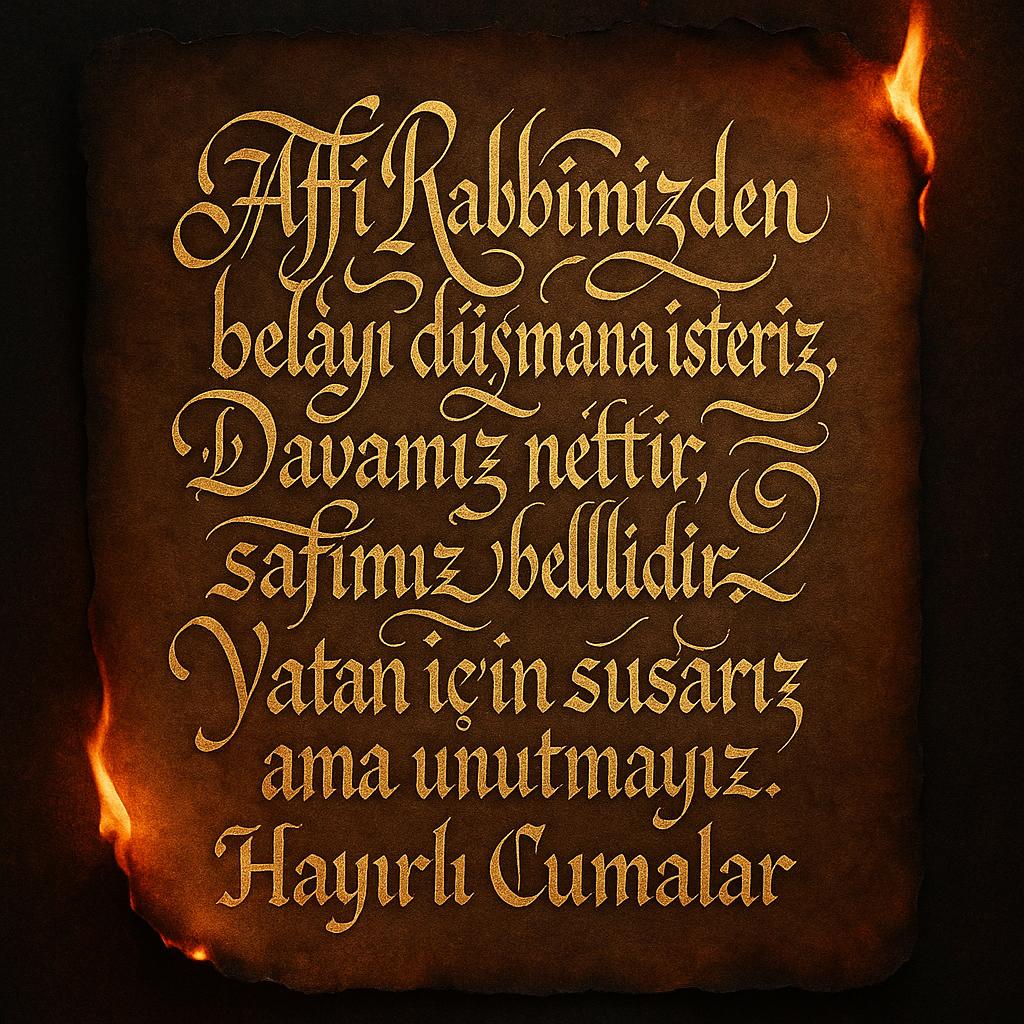 Affi Rabbimizden
belâyı düşmana isteriz.
Davamız nettir,
safımız belllidir.
Vatan için susarız
ama unutmayız.
Hayırlı Cumalar